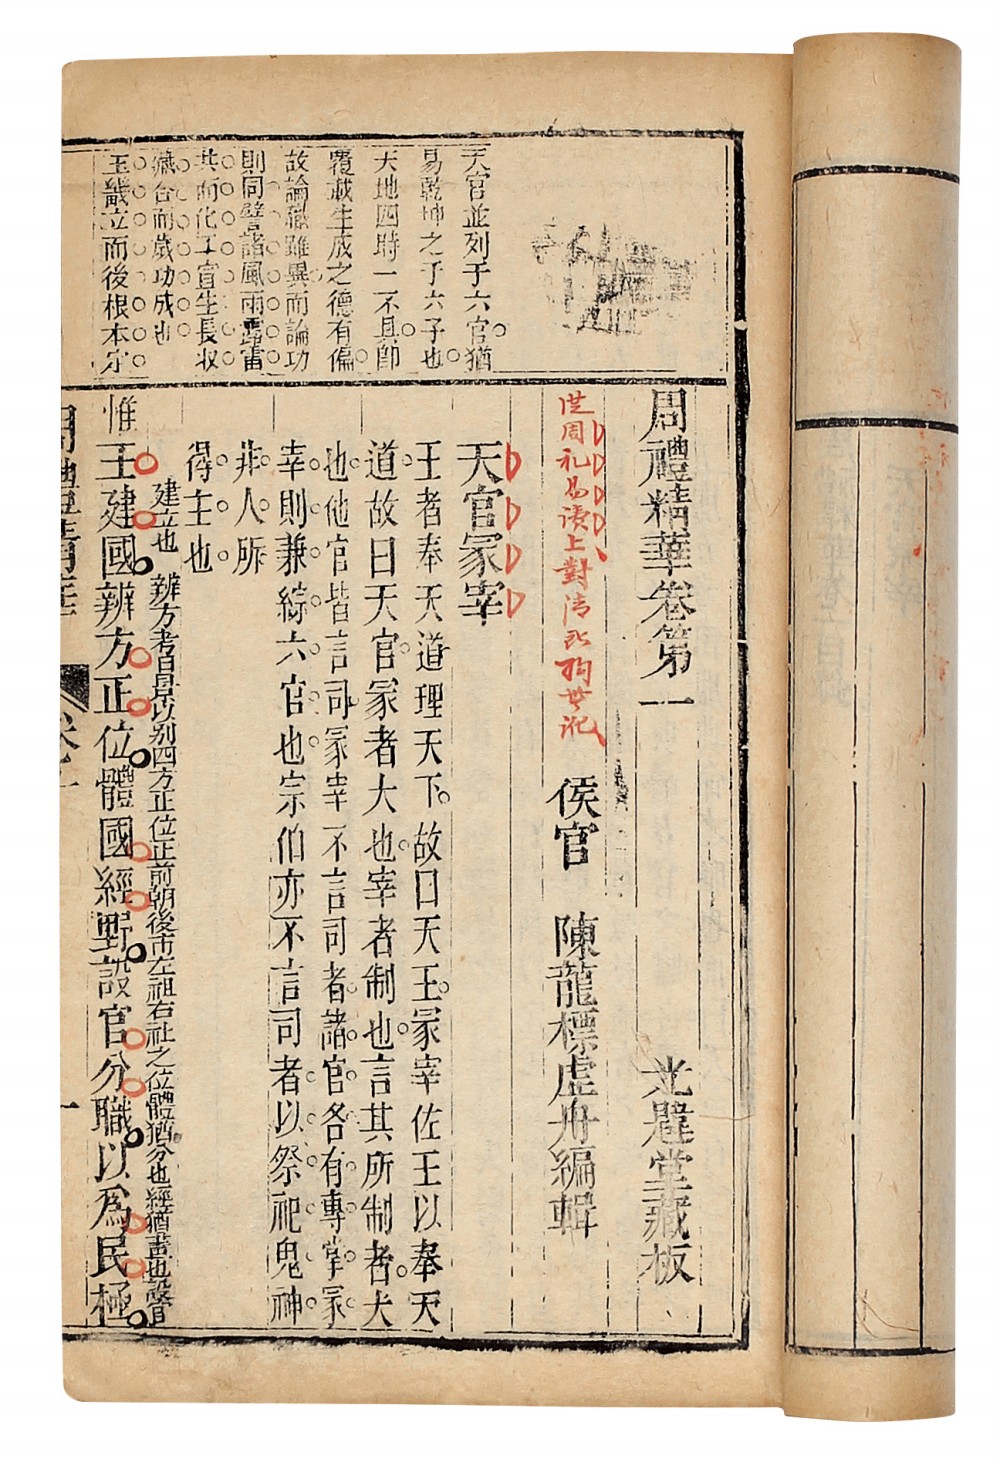 天官並列于六官猶
易乾坤之于六子也
天地四時一不具卽
覆載生成之德有偏
故論職雖異而論功
則同譬諸風雨露雷
共而化工宣生長收
藏合而歲功成也
王畿立而後根本定
周禮精華卷第一 光韙堂藏板
侯官 陳龍標虛舟編輯
周礼易读上對清
天官冢宰
王者奉天道理天下故曰天王冢宰佐王以奉天
道故曰天官冢者大也宰者制也言其所制者大
也他官皆言司冢宰不言司者諸官各有專掌冢
宰則兼綜六官也宗伯亦不言司者以祭祀鬼神
非人所
得主也
建立也 辨方考日景以別四方正位正前朝後市左祖右社之位體猶分也經猶畫也設官
惟王建國辨方正位體國經野設官分職以爲民極
周禮精華 卷一 一